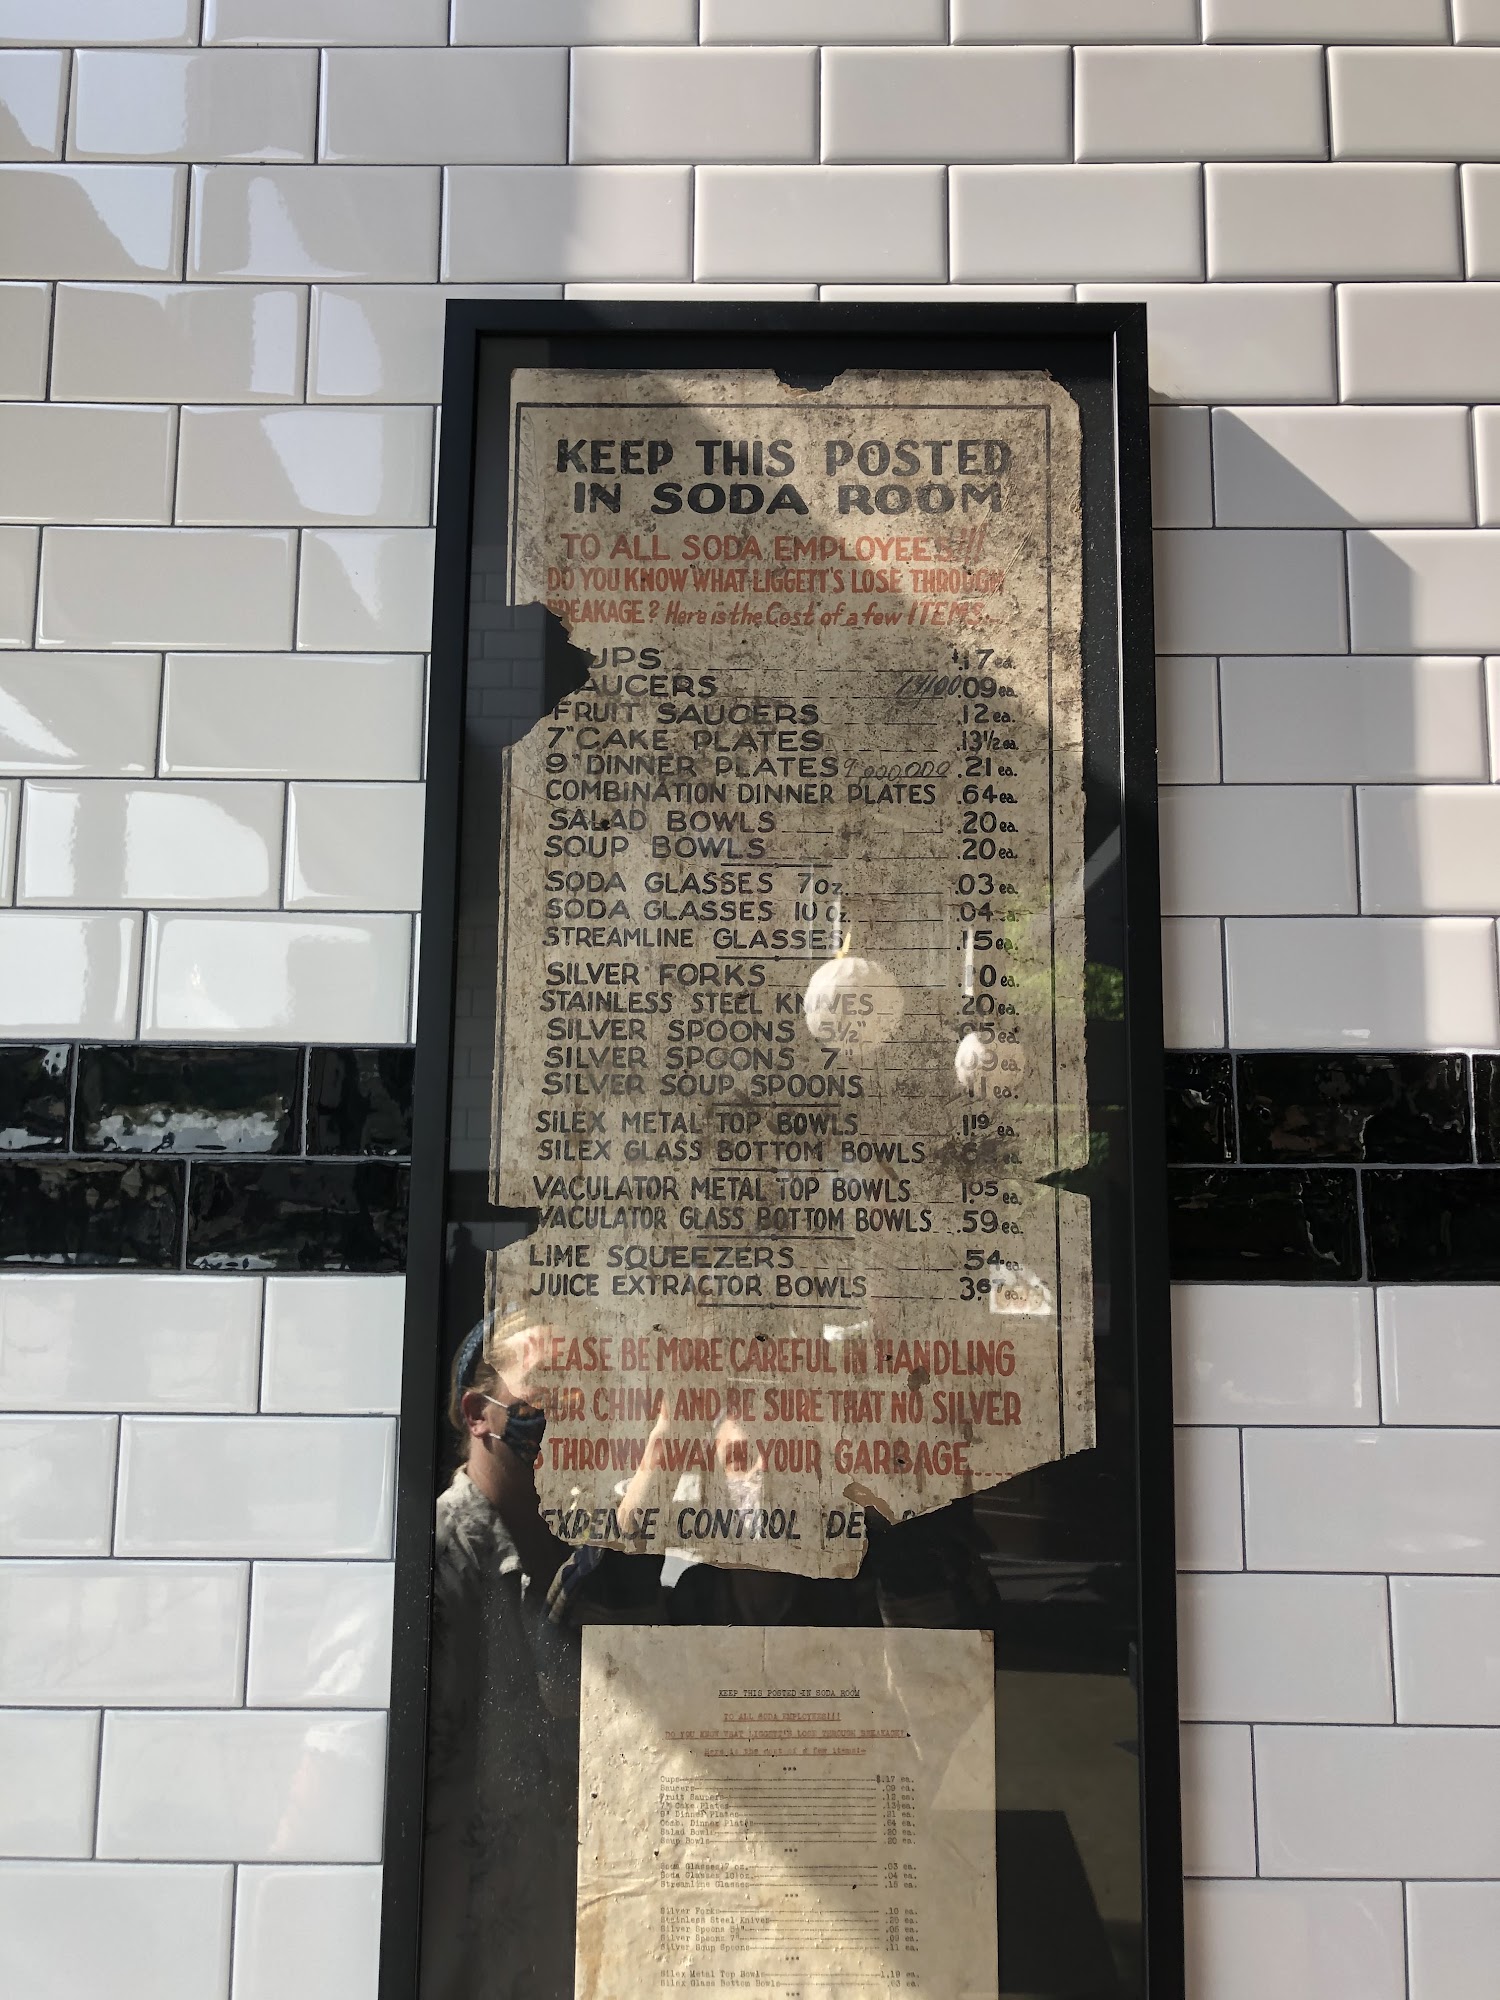 KEEP THIS POSTED
IN SODA ROOM
TO ALL SODA EMPLOYEES!!!
DO YOU KNOW WHAT LIGGETT'S LOSE THROUGH
BREAKAGE? Here is the Cost of a few ITEMS...
UPS $.17 ea.
AUCERS .09 ea.
FRUIT SAUCERS .12 ea.
7" CAKE PLATES .13½ ea.
9" DINNER PLATES 9,000,000 .21 ea.
COMBINATION DINNER PLATES .64 ea.
SALAD BOWLS .20 ea.
SOUP BOWLS .20 ea.
SODA GLASSES 7 oz. .03 ea.
SODA GLASSES 10 oz. .04 ea.
STREAMLINE GLASSES .15 ea.
SILVER FORKS 0 ea.
STAINLESS STEEL KNIVES .20 ea.
SILVER SPOONS 5½" .05 ea.
SILVER SPOONS 7" .09 ea.
SILVER SOUP SPOONS .11 ea.
SILEX METAL TOP BOWLS 1.19 ea.
SILEX GLASS BOTTOM BOWLS ea.
VACULATOR METAL TOP BOWLS 1.05 ea.
VACULATOR GLASS BOTTOM BOWLS .59 ea.
LIME SQUEEZERS .54 ea.
JUICE EXTRACTOR BOWLS 3.67 ea.
PLEASE BE MORE CAREFUL IN HANDLING
OUR CHINA AND BE SURE THAT NO SILVER
S THROWN AWAY IN YOUR GARBAGE....
EXPENSE CONTROL DE
KEEP THIS POSTED IN SODA ROOM
TO ALL SODA EMPLOYEES!!!
DO YOU KNOW WHAT LIGGETT'S LOSE THROUGH BREAKAGE?
Here is the cost of a few items:-
***
Cups $.17 ea.
Saucers .09 ea.
Fruit Saucers .12 ea.
7" Cake Plates .13½ ea.
9" Dinner Plates .21 ea.
Comb. Dinner Plates .64 ea.
Salad Bowls .20 ea.
Soup Bowls .20 ea.
***
Soda Glasses 7 oz. .03 ea.
Soda Glasses 10 oz. .04 ea.
Streamline Glasses .15 ea.
***
Silver Forks .10 ea.
Stainless Steel Knives .20 ea.
Silver Spoons 5½" .05 ea.
Silver Spoons 7" .09 ea.
Silver Soup Spoons .11 ea.
***
Silex Metal Top Bowls 1.19 ea.
Silex Glass Bottom Bowls ea.
***